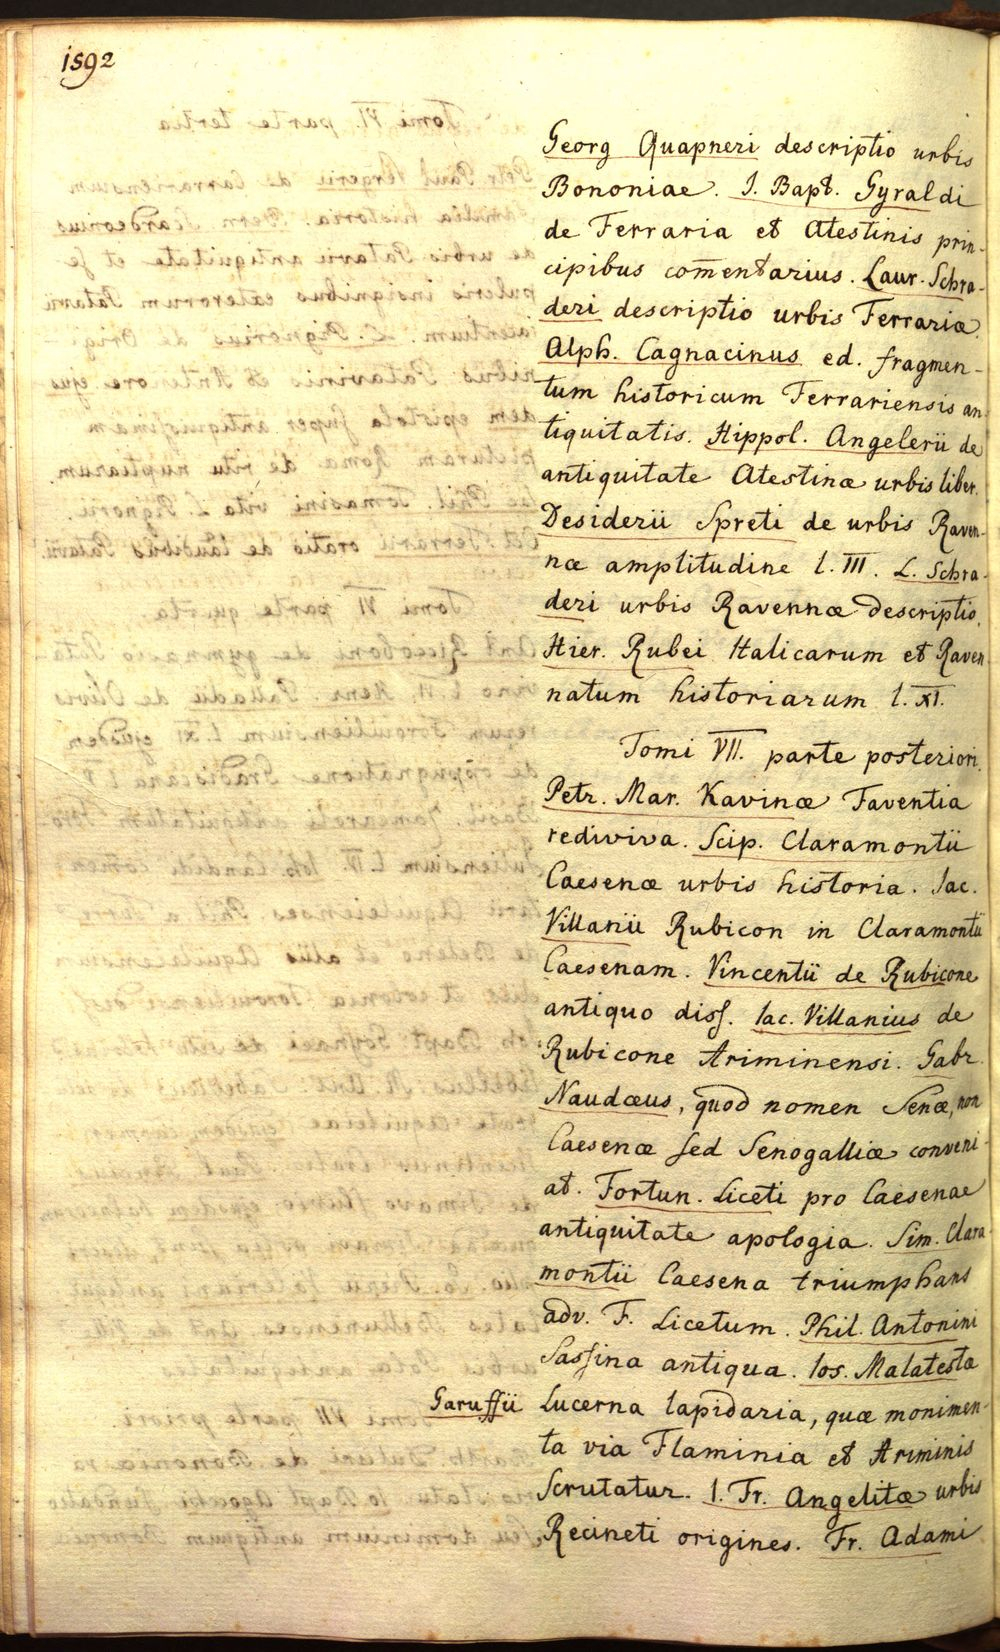 1592
Georg Quapneri descriptio urbis
Bononiae. I. Bapt. Gyraldi
de Ferraria et Atestinis prin-
cipibus com̄entarius. Laur. Schra-
deri descriptio urbis Ferrariæ.
Alph. Cagnacinus ed. fragmen-
tum historicum Ferrariensis an-
tiquitatis. Hippol. Angelerii de
antiquitate Atestinæ urbis liber.
Desiderii Spreti de urbis Raven-
næ amplitudine l. III. L. Schra-
deri urbis Ravennæ descriptio.
Hier. Rubei Italicarum et Raven
natum historiarum l. XI.
Tomi VII. parte posteriori.
Petr. Mar. Kavinæ Faventia
rediviva. Scip. Claramontii
Caesenæ urbis historia. Iac.
Villanii Rubicon in Claramontii
Caesenam. Vincentii de Rubicone
antiquo diss. Iac. Villanius de
Rubicone Ariminensi. Gabr.
Naudæus, quod nomen Senæ, non
Caesenæ sed Senogalliæ conveni-
at. Fortun. Liceti pro Caesenae
antiquitate apologia. Sim. Clara
montii Caesena triumphans
adv. F. Licetum. Phil. Antonini
Sassina antiqua. Ios. Malatestæ
Garuffii Lucerna lapidaria, quæ monimen-
ta via Flaminia et Ariminis
Scrutatur. I. Fr. Angelitæ urbis
Recineti origines. Fr. Adami